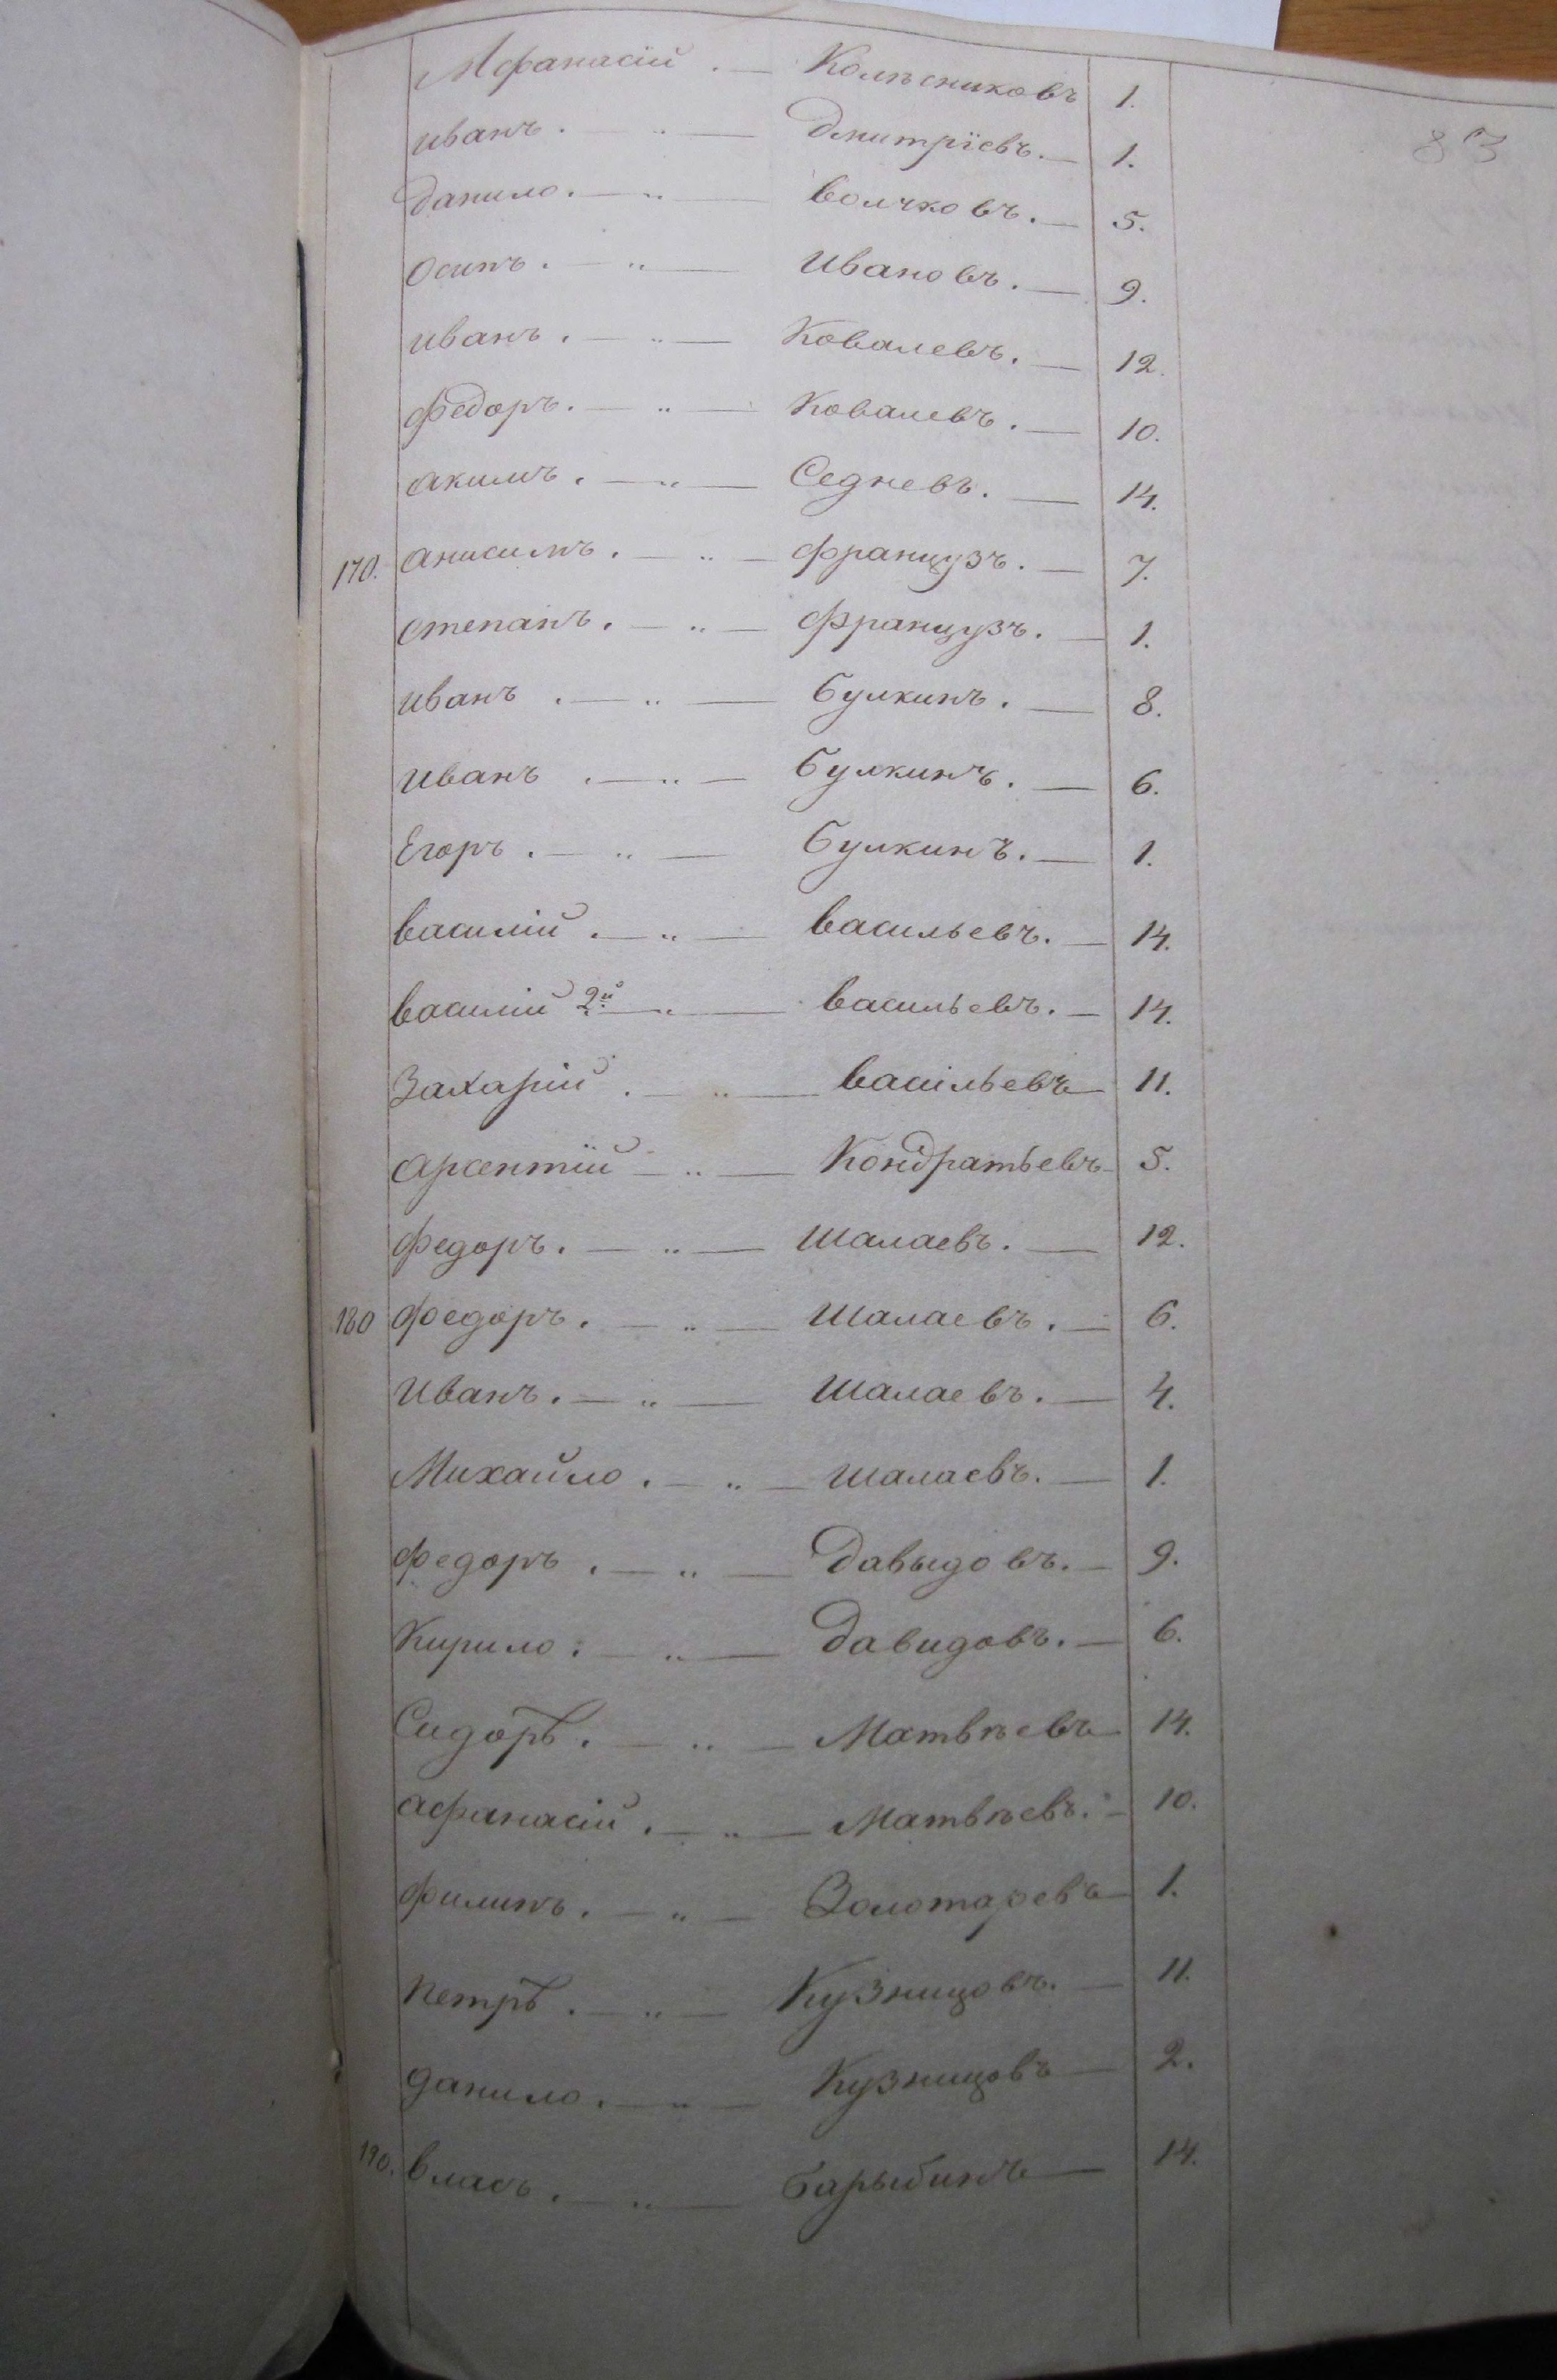 Афанасій . — Колѣсниковъ 1.
83
иванъ . — „ — Дмитріевъ. — 1.
Данило. — „ — Волчковъ. — 5.
Осипъ . — „ — Ивановъ. — 9.
иванъ . — „ — Ковалевъ. — 12.
Федоръ. — „ — Ковалевъ. — 10.
акимъ . — „ — Седневъ. — 14.
170. анисимъ . — „ — Французъ. — 7.
степанъ . — „ — Французъ. — 1.
иванъ . — „ — Булкинъ. — 8.
иванъ . — „ — Булкинъ. — 6.
Егоръ . — „ — Булкинъ. — 1.
василій . — „ — васильевъ. — 14.
василій 2й — „ — васильевъ. — 14.
Захарій . — „ — васільевъ — 11.
арсентій — „ — Кондратьевъ — 5.
федоръ. — „ — Шалаевъ. — 12.
180 федоръ. — „ — Шалаевъ. — 6.
иванъ. — „ — Шалаевъ. — 4.
Михайло . — „ — шалаевъ. — 1.
федоръ . — „ — Давыдовъ. — 9.
Кирило . — „ — Давидовъ. — 6.
Сидоръ . — „ — Матвѣевъ — 14.
афанасій . — „ — Матвѣевъ. — 10.
филипъ . — „ — Золотаревъ — 1.
петръ . — „ — Кузницовъ. — 11.
данило. — „ — Кузницовъ — 2.
190. власъ . — „ — барыбинъ — 14.